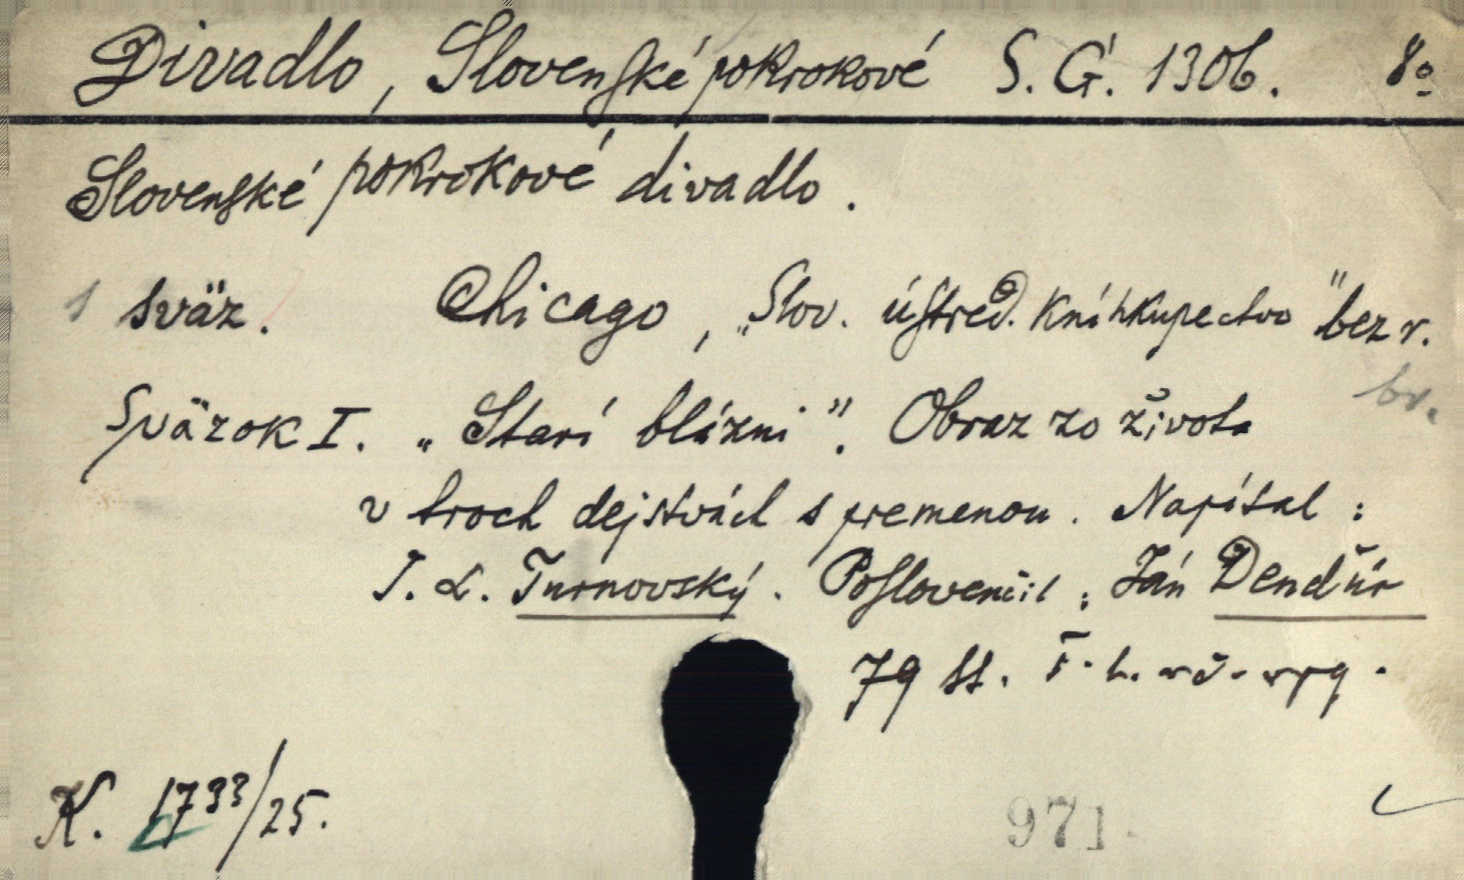 Divadlo, Slovenské pokrokové S. G. 1306. 8º
Slovenské pokrokové divadlo.
1 sväz. Chicago, „Slov. ústred. kníhkupectvo" bez r.
br.
Sväzok I. „Starí blázni". Obraz zo života
v troch dejstvách s premenou. Napísal:
J. L. Turnovský. Poslovenčil: Ján Dendúr
79 ss.
K. 1733/25.
971